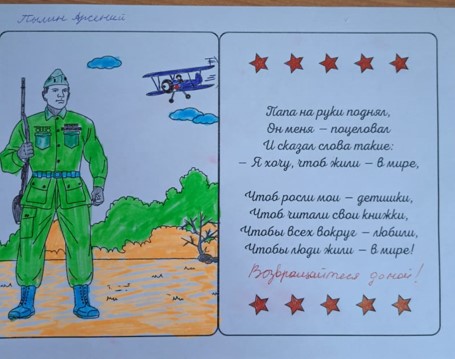 Пылин Арсений
Папа на руки поднял,
Он меня – поцеловал
И сказал слова такие:
– Я хочу, чтоб жили – в мире,
Чтоб росли мои – детишки,
Чтоб читали свои книжки,
Чтобы всех вокруг – любили,
Чтобы люди жили – в мире!
Возвращайтеся домой!